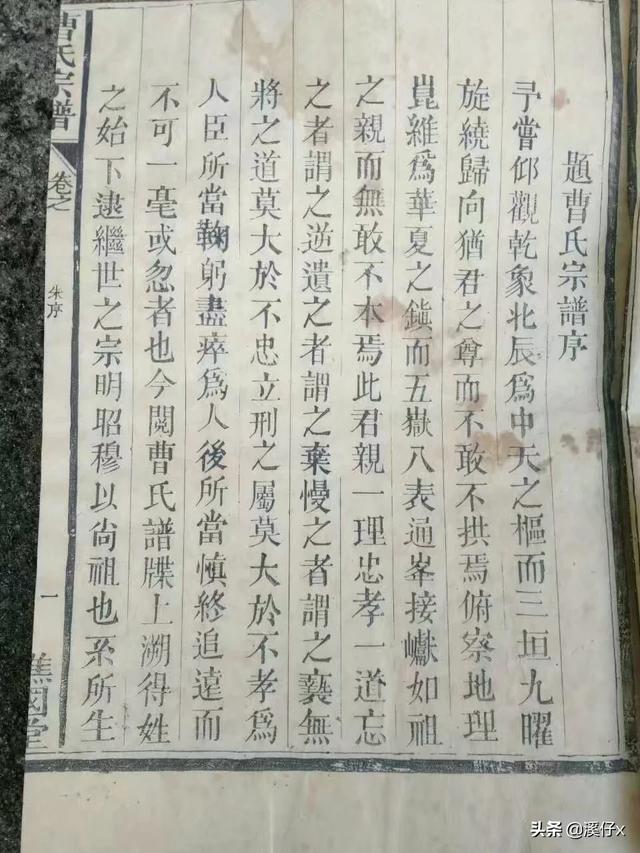 題曹氏宗譜序
予嘗仰觀乾象北辰爲中天之樞而三垣九曜
旋繞歸向猶君之尊而不敢不拱焉俯察地理
崑維爲華夏之鎭而五嶽八表通峯接巘如祖
之親而無敢不本焉此君親一理忠孝一道忘
之者謂之逆遺之者謂之棄慢之者謂之褻無
將之道莫大於不忠立刑之屬莫大於不孝爲
人臣所當鞠躬盡瘁爲人後所當慎終追遠而
不可一毫或忽者也今閱曹氏譜牒上溯得姓
之始下逮繼世之宗明昭穆以尙祖也系所生
曹氏宗譜
卷之
朱序
一
譙國堂
头条 @溪仔x